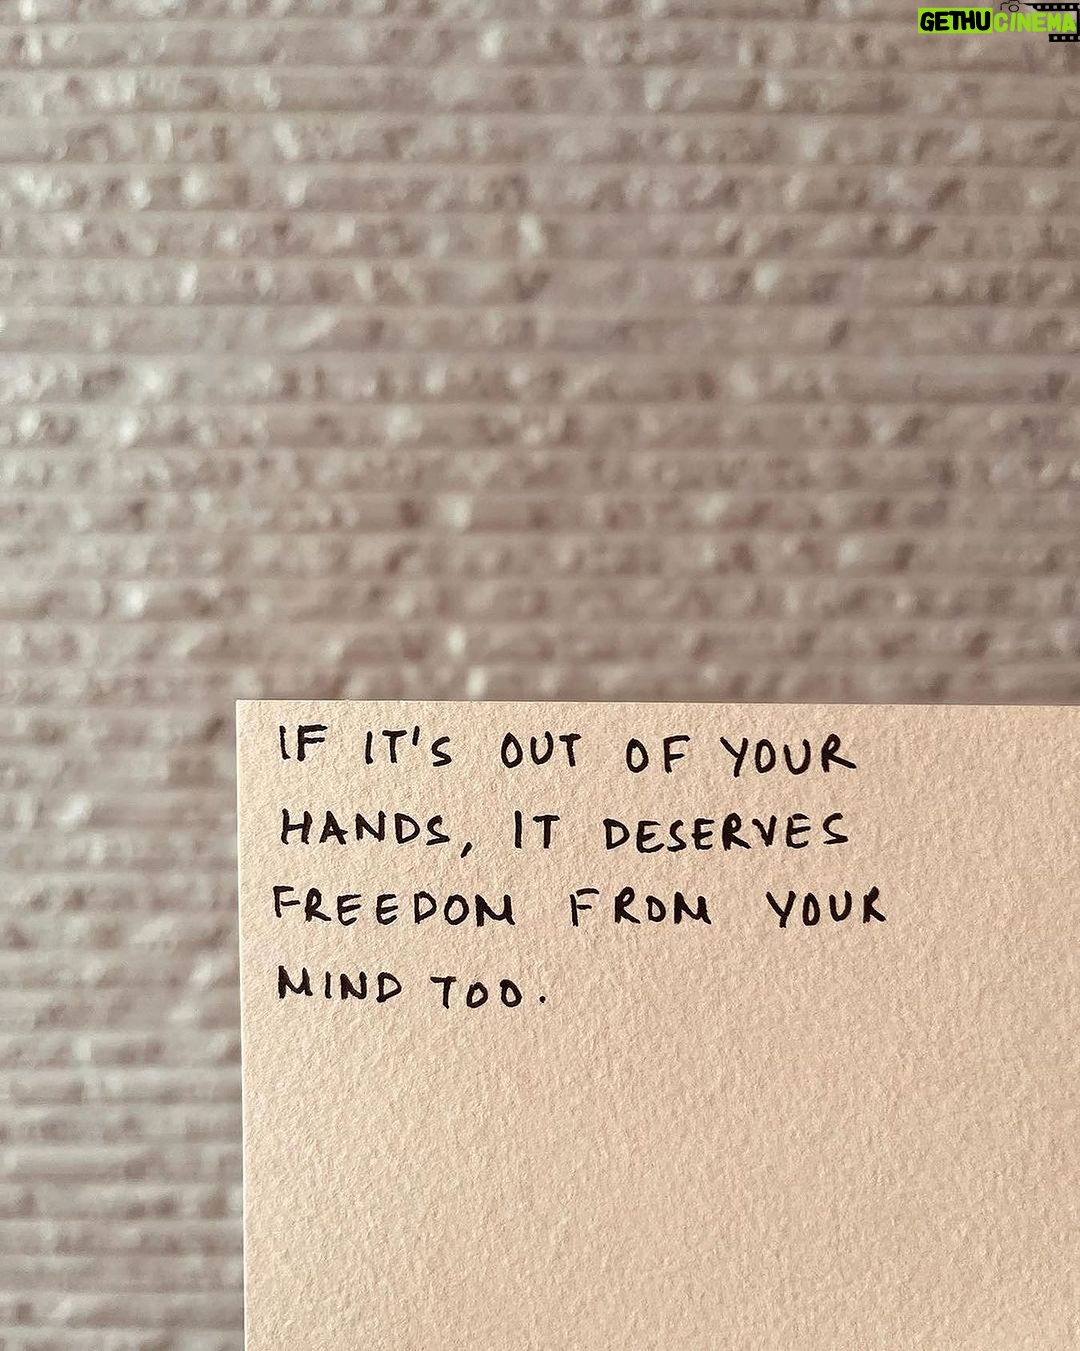 GETHUCINEMA
IF IT'S OUT OF YOUR
HANDS, IT DESERVES
FREEDOM FROM YOUR
MIND TOO.